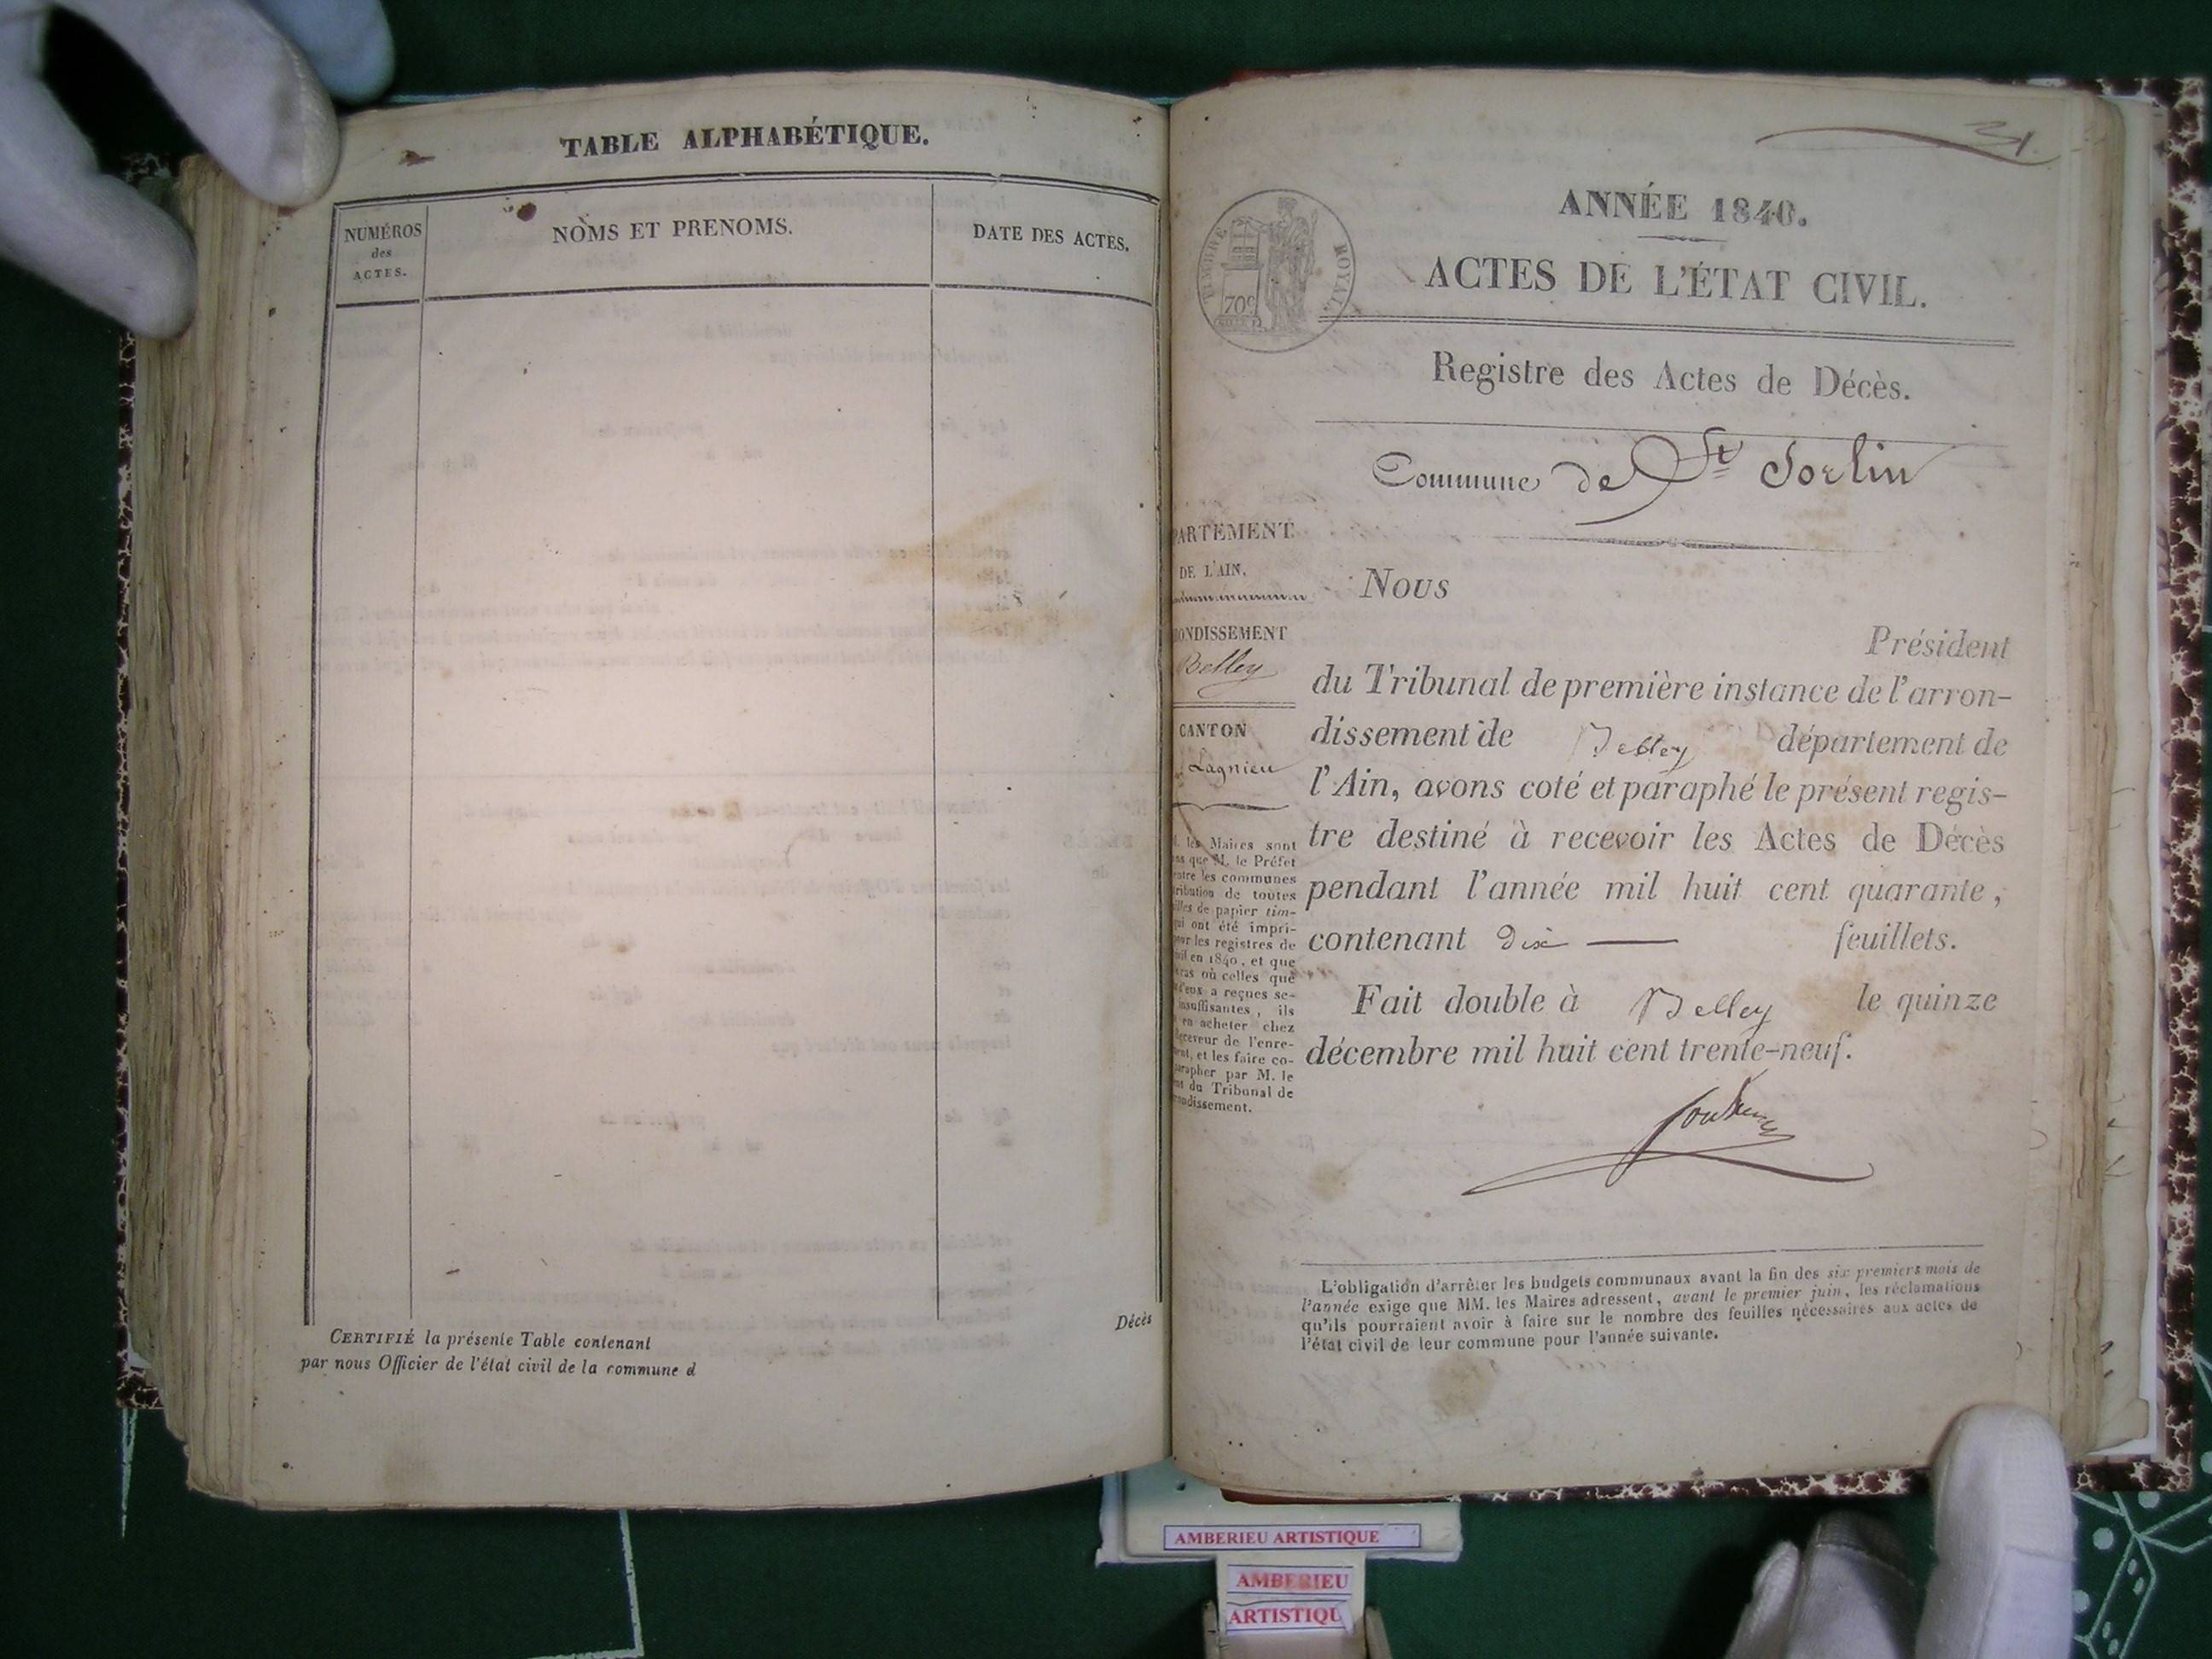 TABLE ALPHABÉTIQUE.
NUMÉROS
des
ACTES.
NOMS ET PRENOMS.
DATE DES ACTES.
Décès
CERTIFIÉ la présente Table contenant
par nous Officier de l'état civil de la commune d
31
TIMBRE ROYAL
70c
ANNÉE 1840.
ACTES DE L'ÉTAT CIVIL.
Registre des Actes de Décès.
Commune de St Sorlin
PARTEMENT
DE L'AIN.
ONDISSEMENT
Belley
CANTON
Lagnieu
les Maires sont
que M. le Préfet
les communes
tribution de toutes
de papier tim-
qui ont été impri-
les registres de
en 1840, et que
cas où celles que
d'eux a reçues se-
insuffisantes, ils
en acheter chez
Receveur de l'enre-
et les faire co-
parapher par M. le
du Tribunal de
ondissement.
Nous
Président
du Tribunal de première instance de l'arron-
dissement de Belley département de
l'Ain, avons coté et paraphé le présent regis-
tre destiné à recevoir les Actes de Décès
pendant l'année mil huit cent quarante,
contenant dix — feuillets.
Fait double à Belley le quinze
décembre mil huit cent trente-neuf.
L'obligation d'arrêter les budgets communaux avant la fin des six premiers mois de
l'année exige que MM. les Maires adressent, avant le premier juin, les réclamations
qu'ils pourraient avoir à faire sur le nombre des feuilles nécessaires aux actes de
l'état civil de leur commune pour l'année suivante.
AMBERIEU ARTISTIQUE
AMBERIEU
ARTISTIQU